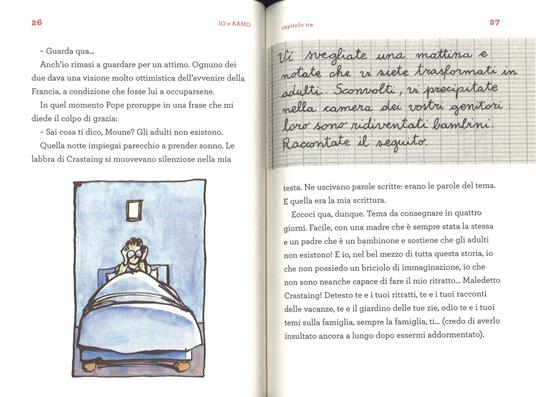 26
IO e KAMO
– Guarda qua...
Anch'io rimasi a guardare per un attimo. Ognuno dei
due dava una visione molto ottimistica dell'avvenire della
Francia, a condizione che fosse lui a occuparsene.
In quel momento Pope proruppe in una frase che mi
diede il colpo di grazia:
– Sai cosa ti dico, Moune? Gli adulti non esistono.
Quella notte impiegai parecchio a prender sonno. Le
labbra di Crastaing si muovevano silenziose nella mia
capitolo tre
27
Vi svegliate una mattina e
notate che vi siete trasformati in
adulti. Sconvolti, vi precipitate
nella camera dei vostri genitori:
loro sono ridiventati bambini.
Raccontate il seguito.
testa. Ne uscivano parole scritte: erano le parole del tema.
E quella era la mia scrittura.
Eccoci qua, dunque. Tema da consegnare in quattro
giorni. Facile, con una madre che è sempre stata la stessa
e un padre che è un bambinone e sostiene che gli adulti
non esistono! E io, nel bel mezzo di tutta questa storia, io
che non possiedo un briciolo di immaginazione, io che
non sono neanche capace di fare il mio ritratto... Maledetto
Crastaing! Detesto te e i tuoi ritratti, te e i tuoi racconti
delle vacanze, te e il giardino delle tue zie, odio te e i tuoi
temi sulla famiglia, sempre la famiglia, ti... (credo di averlo
insultato ancora a lungo dopo essermi addormentato).